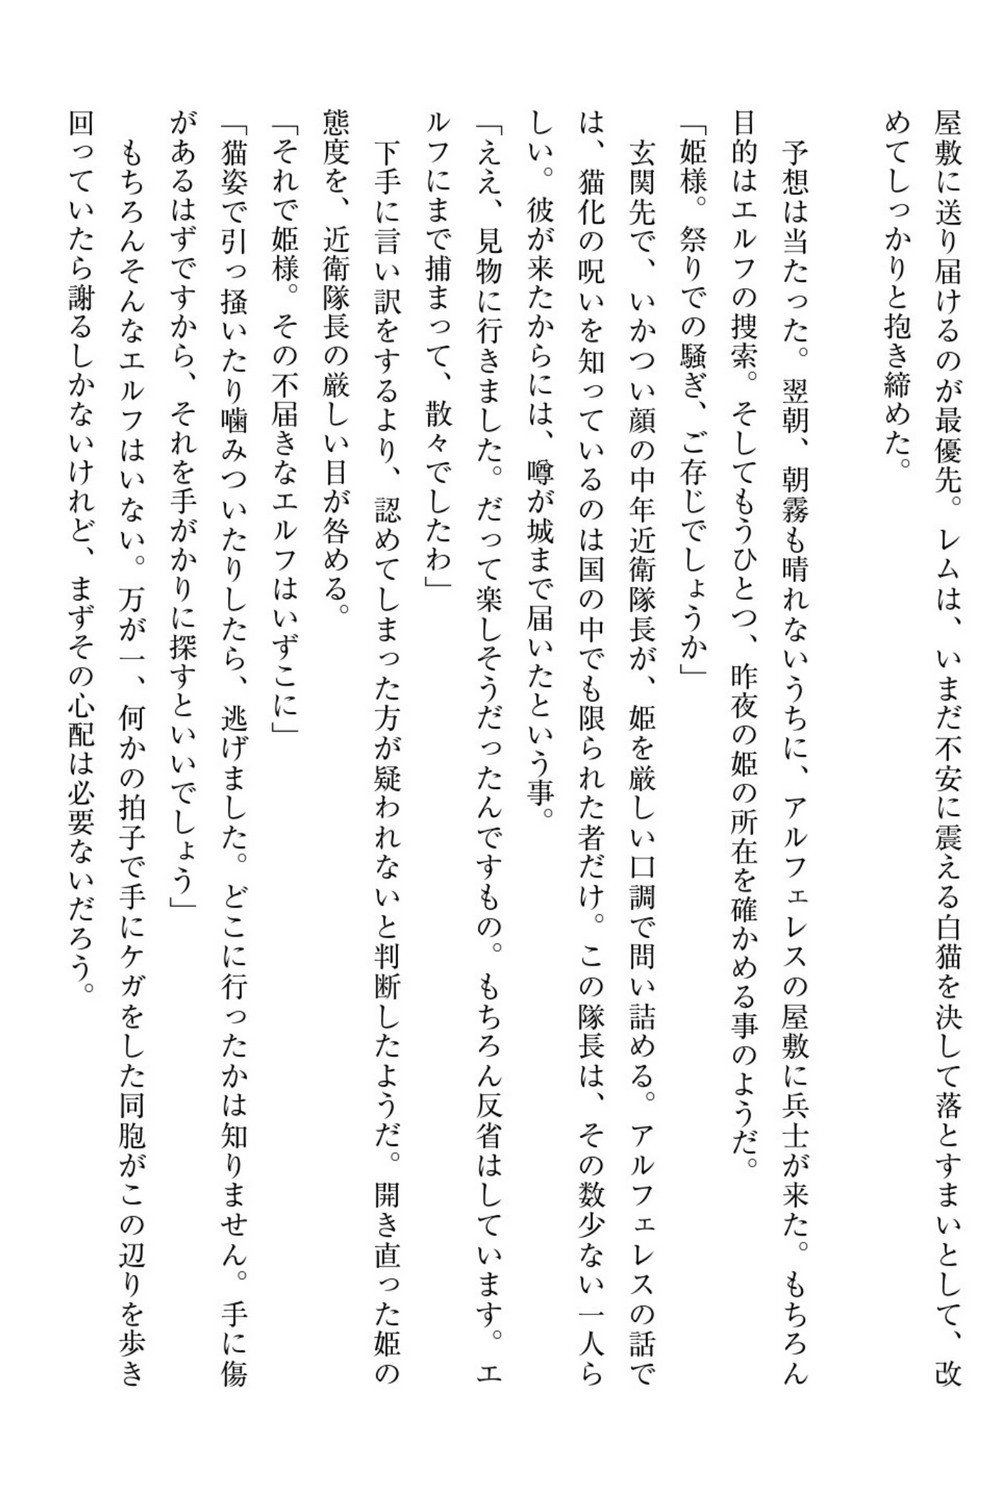 屋敷に送り届けるのが最優先。レムは、いまだ不安に震える白猫を決して落とすまいとして、改
めてしっかりと抱き締めた。
予想は当たった。翌朝、朝霧も晴れないうちに、アルフェレスの屋敷に兵士が来た。もちろん
目的はエルフの捜索。そしてもうひとつ、昨夜の姫の所在を確かめる事のようだ。
「姫様。祭りでの騒ぎ、ご存じでしょうか」
玄関先で、いかつい顔の中年近衛隊長が、姫を厳しい口調で問い詰める。アルフェレスの話で
は、猫化の呪いを知っているのは国の中でも限られた者だけ。この隊長は、その数少ない一人ら
しい。彼が来たからには、噂が城まで届いたという事。
「ええ、見物に行きました。だって楽しそうだったんですもの。もちろん反省はしています。エ
ルフにまで捕まって、散々でしたわ」
下手に言い訳をするより、認めてしまった方が疑われないと判断したようだ。開き直った姫の
態度を、近衛隊長の厳しい目が咎める。
「それで姫様。その不届きなエルフはいずこに」
「猫姿で引っ掻いたり噛みついたりしたら、逃げました。どこに行ったかは知りません。手に傷
があるはずですから、それを手がかりに探すといいでしょう」
もちろんそんなエルフはいない。万が一、何かの拍子で手にケガをした同胞がこの辺りを歩き
回っていたら謝るしかないけれど、まずその心配は必要ないだろう。